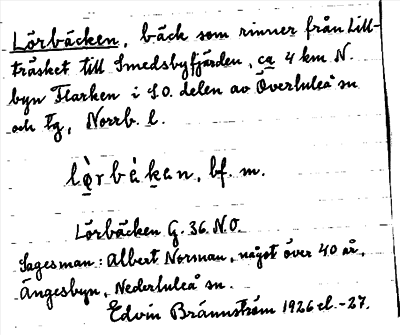 Lörbäcken, bäck som rinner från Lill-
träsket till Smedsbyfjärden, ca 4 km N.
byn Flarken i S.O. delen av Överluleå sn
och tg, Norrb. l.
lò̤rbàḵan, bf. m.
Lörbäcken G. 36. N.O.
Sagesman: Albert Norman, något över 40 år,
Ängesbyn, Nederluleå sn.
Edvin Brännström 1926 el. -27.